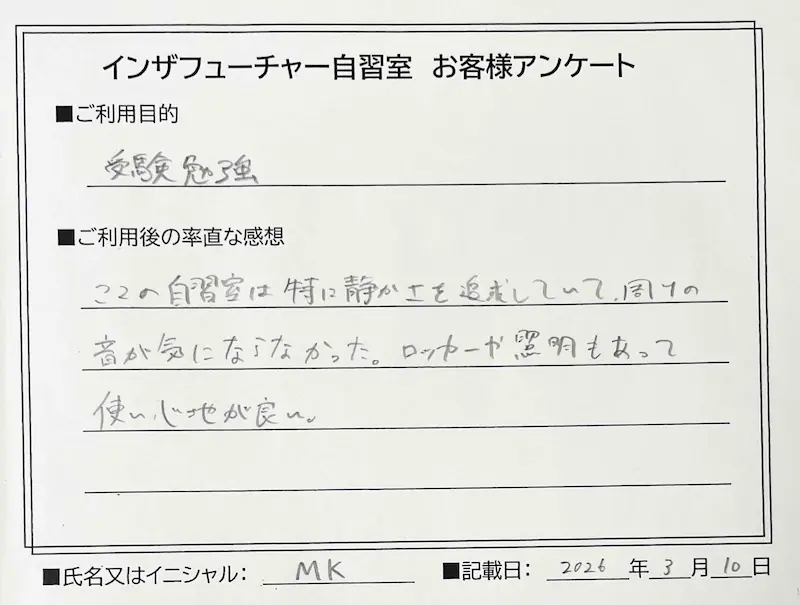 インザフューチャー自習室 お客様アンケート
■ご利用目的
受験勉強
■ご利用後の率直な感想
ここの自習室は特に静かさを追求していて、周りの
音が気にならなかった。ロッカーや照明もあって
使い心地が良い。
■氏名又はイニシャル： MK ■記載日： 2026 年 3 月 10 日